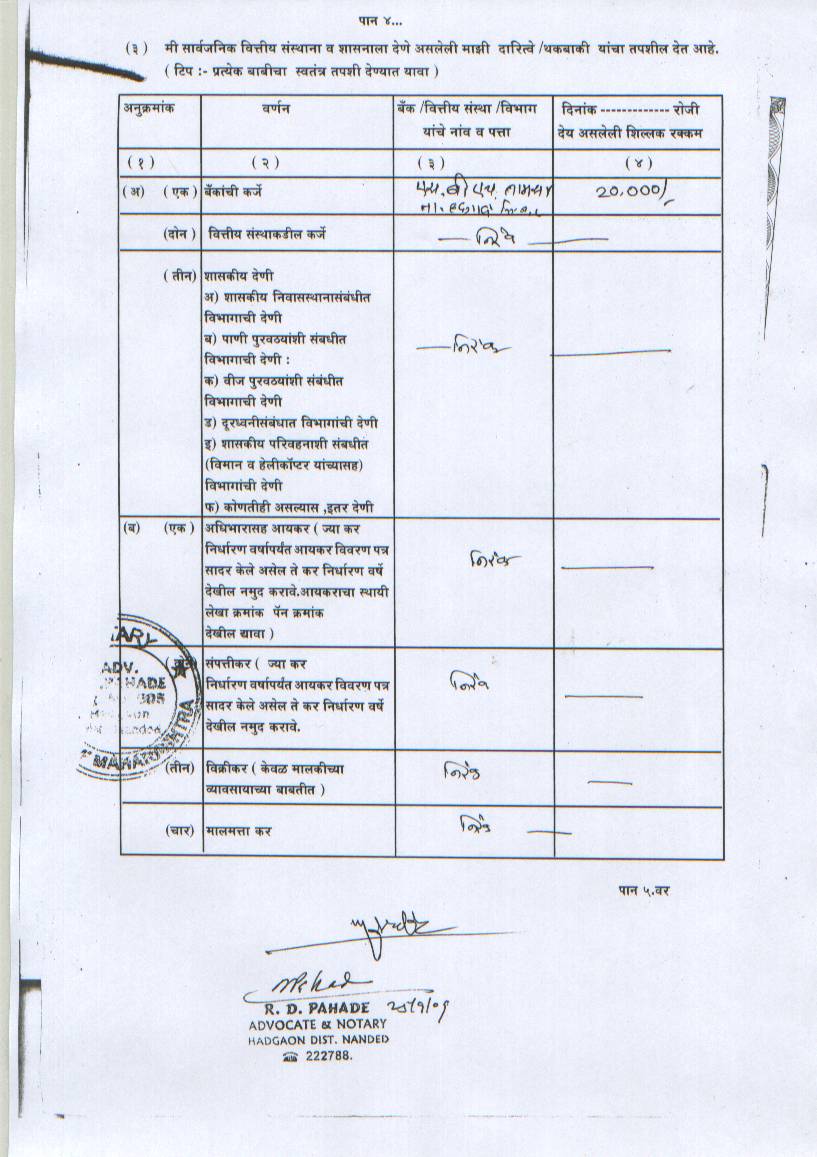 पान ४...
(३) मी सार्वजनिक वित्तीय संस्थाना व शासनाला देणे असलेली माझी दारित्वे /थकबाकी यांचा तपशील देत आहे.
( टिप :- प्रत्येक बाबीचा स्वतंत्र तपशी देण्यात यावा )
अनुक्रमांक वर्णन बँक /वित्तीय संस्था /विभाग दिनांक ------------- रोजी
यांचे नांव व पत्ता देय असलेली शिल्लक रक्कम
(१) (२) (३) (४)
(अ) (एक) बँकांची कर्जे एस.बी.एच. तामसा 20,000/-
ता. हदगाव
(दोन) वित्तीय संस्थाकडील कर्जे निरंक
(तीन) शासकीय देणी
अ) शासकीय निवासस्थानासंबंधीत
विभागाची देणी
ब) पाणी पुरवठयांशी संबधीत
विभागाची देणी : निरंक
क) वीज पुरवठयांशी संबंधीत
विभागाची देणी
ड) दूरध्वनीसंबंधात विभागांची देणी
इ) शासकीय परिवहनाशी संबधीत
(विमान व हेलीकॉप्टर यांच्यासह)
विभागांची देणी
फ) कोणतीही असल्यास ,इतर देणी
(ब) (एक) अधिभारासह आयकर ( ज्या कर
निर्धारण वर्षापर्यंत आयकर विवरण पत्र
सादर केले असेल ते कर निर्धारण वर्षे निरंक
देखील नमुद करावे.आयकराचा स्थायी
लेखा क्रमांक पॅन क्रमांक
देखील द्यावा )
(दोन) संपत्तीकर ( ज्या कर
निर्धारण वर्षापर्यंत आयकर विवरण पत्र निरंक
सादर केले असेल ते कर निर्धारण वर्षे
देखील नमुद करावे.
(तीन) विक्रीकर ( केवळ मालकीच्या निरंक
व्यावसायाच्या बाबतीत )
(चार) मालमत्ता कर निरंक
ADV.
MAHARASHTRA
पान ५.वर
R. D. PAHADE 25/9/09
ADVOCATE & NOTARY
HADGAON DIST. NANDED
☎ 222788.